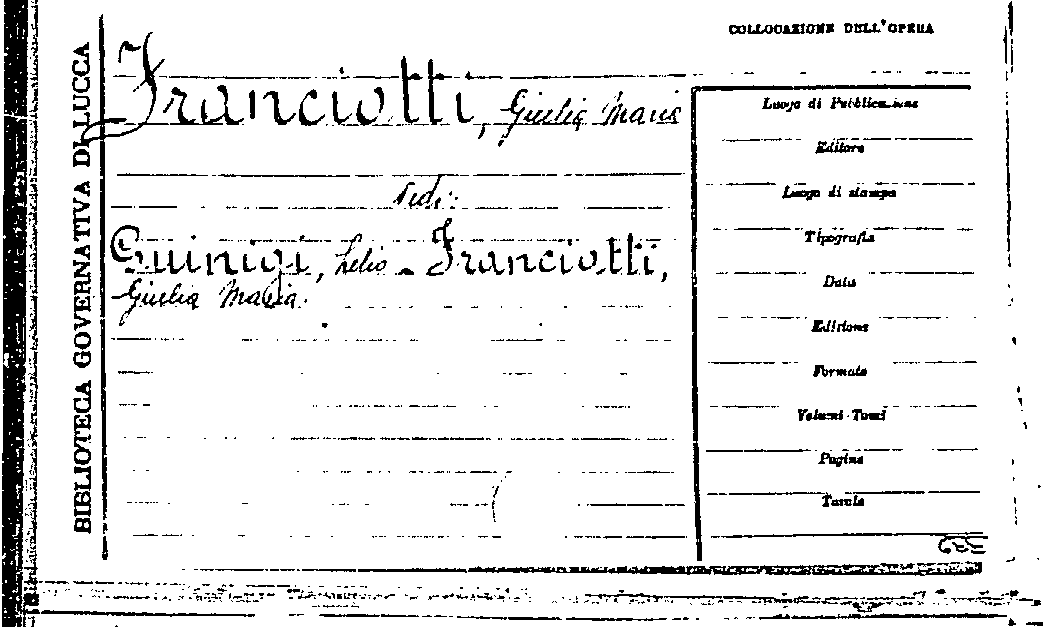 BIBLIOTECA GOVERNATIVA DI LUCCA
COLLOCAZIONE DELL'OPERA
Franciotti, Giulia Maria
Vedi:
Guinigi, Lelio - Franciotti,
Giulia Maria.
Luogo di Pubblicazione
Editore
Luogo di stampa
Tipografia
Data
Edizione
Formato
Volumi-Tomi
Pagine
Tavole